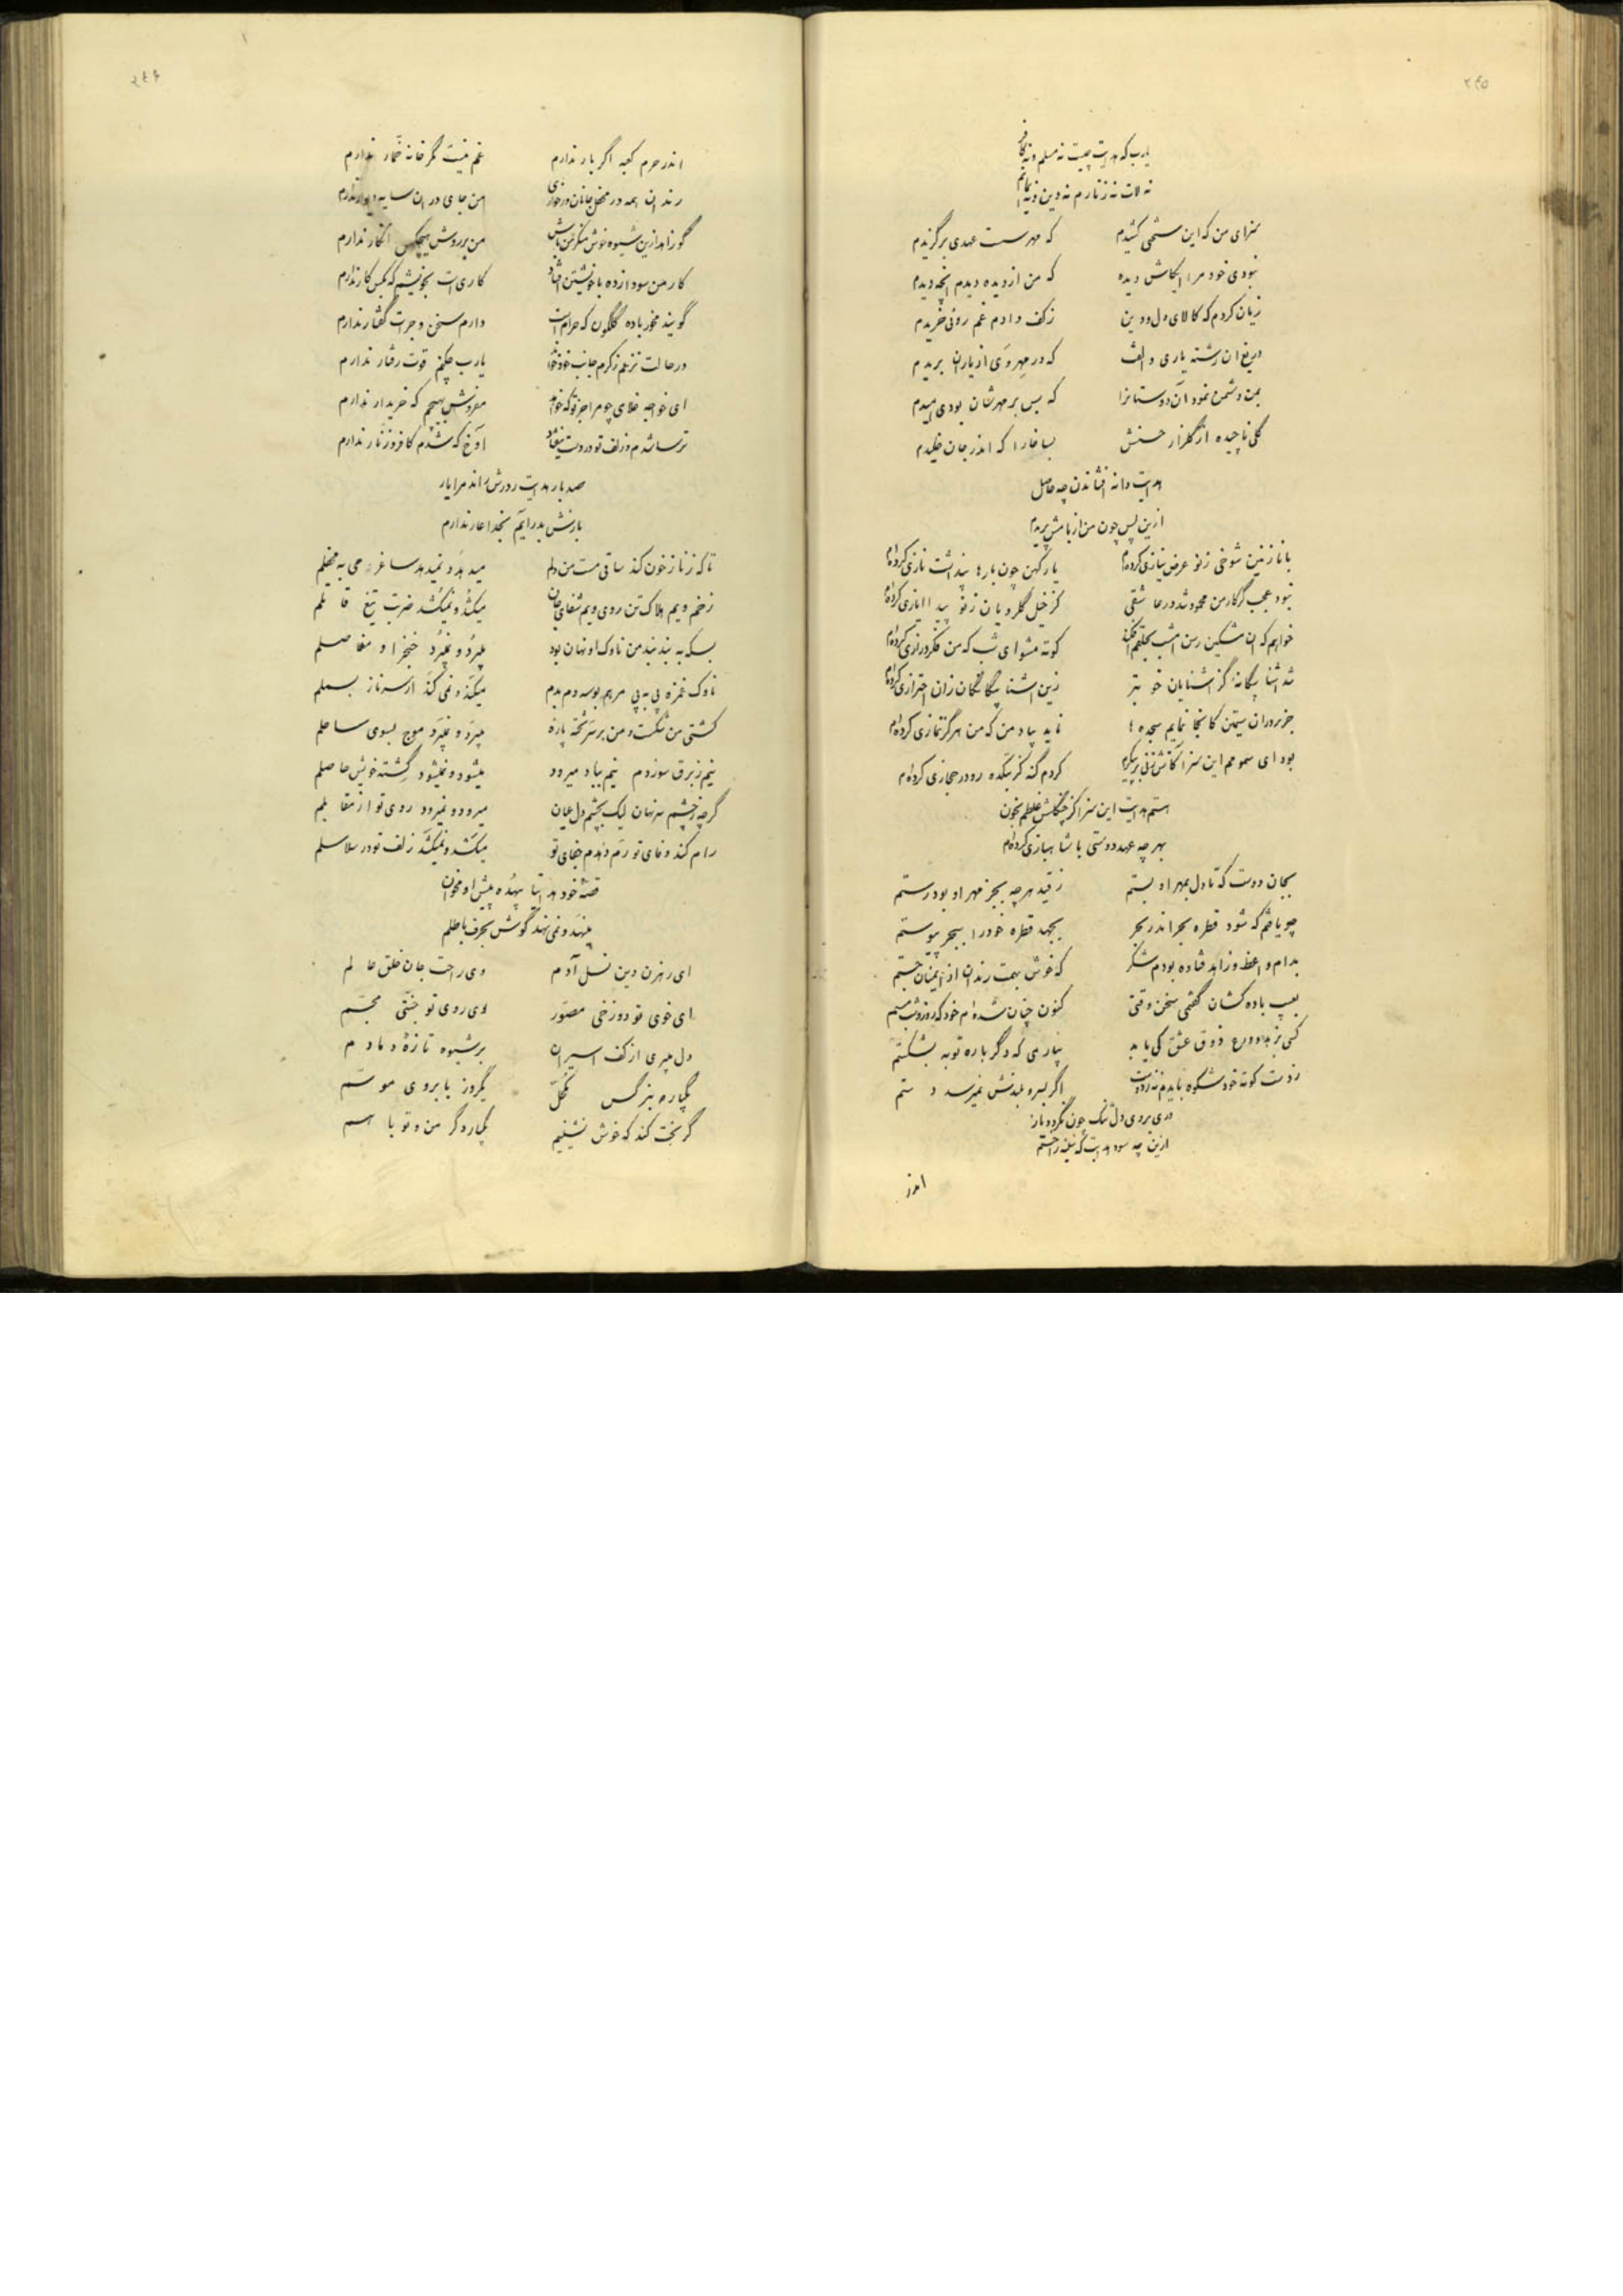 ۲۴۵
یارب که هدایت چیست نه مسلم و نه کافر
نه لات نه زنارم نه دین و نه ایمانم
سزای من که این سختی کشیدم که مهر سست عهدی برگزیدم
نبودی خود مرا ایکاش دیده که من از دیده دیدم آنچه دیدم
زیان کردم که کالای دل و دین ز کف دادم غم روئی خریدم
دریغ ان رشته یاری و الفت که در مهر وی از یاران بریدم
بمن دشمن نمود آن دوستانرا که بس بر مهرشان بودی امیدم
گلی ناچیده از گلزار حسنش بسا خارا که اندر جان خلیدم
هدایت دانه افشاندن چه حاصل
ازین پس چون من از بامش پریدم
با نازنین شوخی ز نو عرض نیازی کرده‌ام یار کهن چون بارها پنداشت نازی کرده‌ام
نبود عجب گر کار من محمود شد در عاشقی کز خیل گلرویان ز نو پیدا ایازی کرده‌ام
خواهم که ان مشکین رسن امشب بحلقم افکند کوته مشو ای شب که من فکر درازی کرده‌ام
شد اشنا بیگانه گز اشنایان خوبتر زین اشنا بیگانگان زان احترازی کرده‌ام
جز بر در ان سیمتن کانجا نمایم سجده‌ها ناید بیاد من که من هرگز نمازی کرده‌ام
بود ای صنم هم این سزا کاتش زنی بر پیکرم کردم گنه کز بتکده رو در حجازی کرده‌ام
هستم هدایت این سزا کز چنگلش غلطم بخون
بهر چه عهد دوستی با شاهبازی کرده‌ام
بجان دوست که تا دل بمهر او بستم ز قید هر چه بجز مهر او بود رستم
چو یافتم که شود قطره بحر اندر بحر بجهد قطره خود را ببحر پیوستم
بدام واعظ و زاهد فتاده بودم شکر که خوش بهمت رندان از اینان جستم
بعیب باده کشان گفتمی سخن وقتی کنون چنان شده‌ام خود که روز و شب مستم
کسی بزهد و ورع ذوق عشق کی یابد بیار می که دگرباره توبه بشکستم
ز دست کوته خود شکوه بایدم نه ز دوست اگر بسرو بلندش نمیرسد دستم
دری بروی دل تنگ چون نگردد باز
ازین چه سود هدایت که سینه را خستم
اندر
۲۴۶
اندر حرم کعبه اگر بار ندارم غم نیست مگر خانه خمار ندارم
رندان همه در محفل جانان و ز خواری من جای در ان سایه دیوار ندارم
گو زاهد ازین شیوه خوش منکر من باش من بر روش هیچکس انکار ندارم
کار من سودازده با خویشتن افتاد کاری است بخویشم که بکس کار ندارم
گویند مخور باده گلگون که حرام است دارم سخن و جرات گفتار ندارم
در حالت نزعم ز کرم جانب خود خواند یارب چکنم قوت رفتار ندارم
ای خواجه غلامی چو مرا جز تو که خواهد مفروش بهیچم که خریدار ندارم
ترسا شدم و زلف تو در دست نیفتاد آوخ که شدم کافر و زنار ندارم
صد بار هدایت ز درش راند مرا یار
بازش بدر ایم بخدا عار ندارم
تا که ز ناز خون کند ساقی مست من دلم میدهد و نمیدهد ساغر می به محفلم
زخم ویم هلاک تن روی ویم شفای جان میکشد و نمیکشد ضربت تیغ قاتلم
بسکه به بند بند من ناوک او نهان بود میبرد و نمیبرد خنجر او مفاصلم
ناوک غمزه پی به پی مرهم بوسه دم بدم میکند و نمی کند از سر ناز بسملم
کشتی من شکست و من بر سر تخته پاره میبرد و نمیبرد موج بسوی ساحلم
نیم ز برق سوزدم نیم بباد میرود میشود و نمیشود کشته خویش حاصلم
گر چه ز چشم سر نهان لیک بچشم دل عیان میرود و نمیرود روی تو از مقابلم
رام کند وفای تو رم دهدم جفای تو میکشد و نمیکشد زلف تو در سلاسلم
قصه خود هدایتا بیهده پیش او مخوان
مینهد و نمی نهد گوش بحرف باطلم
ای رهزن دین نسل آدم وی راحت جان خلق عالم
ای خوی تو دوزخی مصور وی روی تو جنتی مجسم
دل میبری از کف اسیران بر شیوه تازه دمادم
یکباره بنرگس مکحل یکروز بابروی موسم
گر بخت کند که خوش نشینیم یکباره گر من و تو با هم